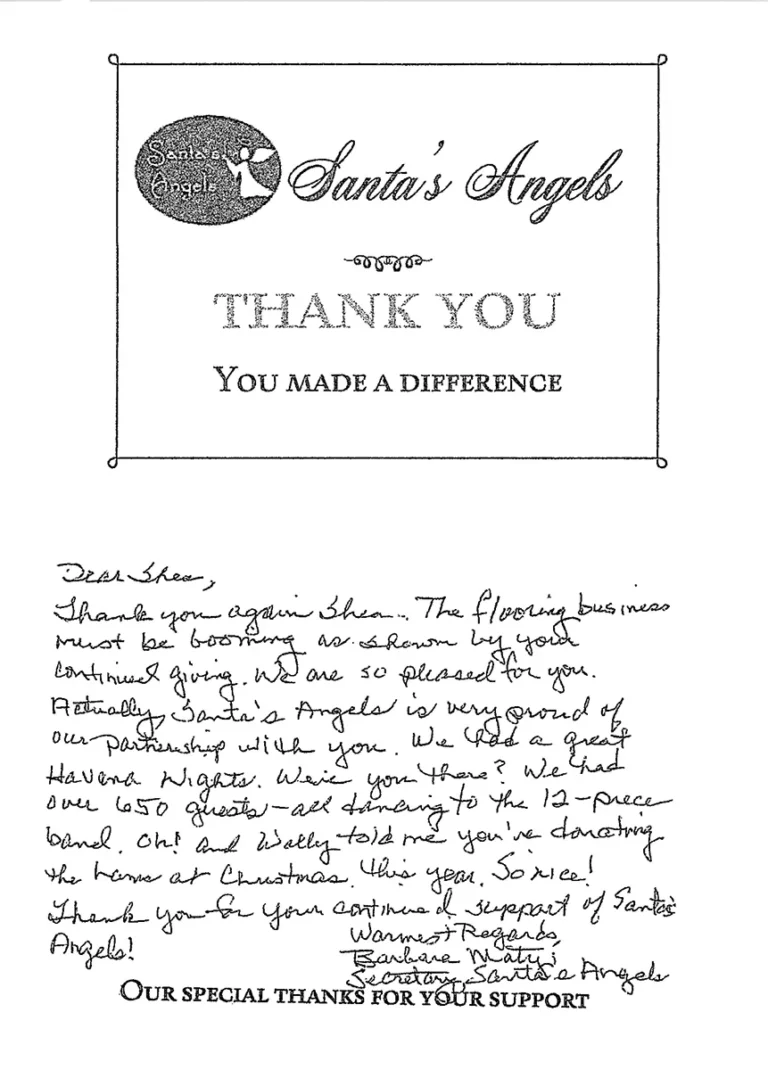 Santa's
Angels
Santa's Angels
THANK YOU
YOU MADE A DIFFERENCE
Dear Shea,
Thank you again Shea.. The flooring business
must be booming as shown by your
continued giving. We are so pleased for you.
Actually, Santa's Angels is very proud of
our partnership with you. We had a great
Havana Nights. Were you there? We had
over 650 guests - all dancing to the 12-piece
band. Oh! and Wally told me you're donating
the hams at Christmas this year. So nice!
Thank you for your continued support of Santa's
Angels!
Warmest Regards,
Barbara
Secretary, Santa's Angels
OUR SPECIAL THANKS FOR YOUR SUPPORT